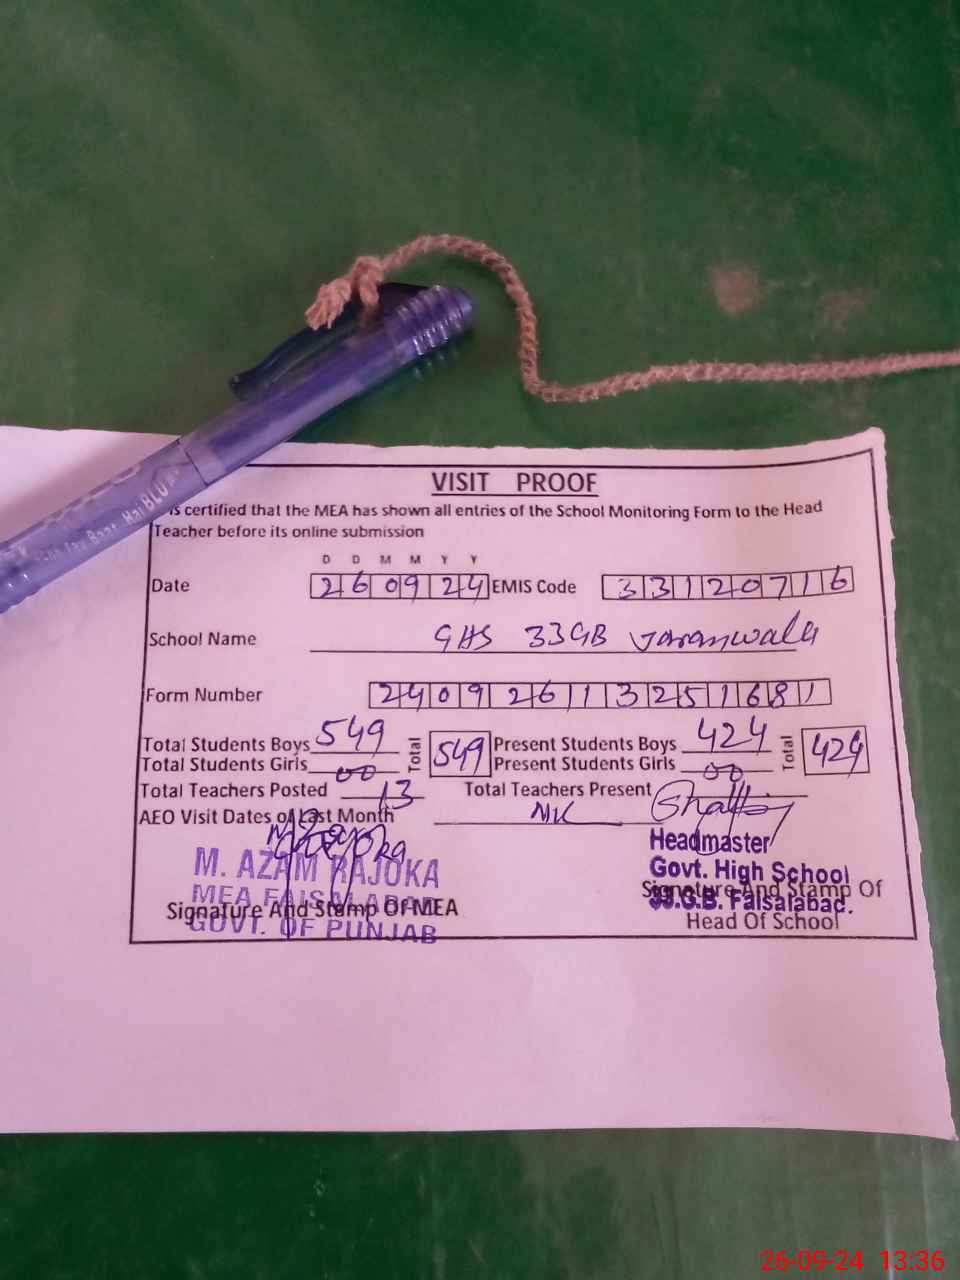 VISIT PROOF
is certified that the MEA has shown all entries of the School Monitoring Form to the Head
Teacher before its online submission
D D M M Y Y
Date 260924 EMIS Code 33120716
School Name GHS 33GB Jaranwala
Form Number 240926113251681
Total Students Boys 549 Total 549 Present Students Boys 424 Total 424
Total Students Girls 00 Present Students Girls 00
Total Teachers Posted 13 Total Teachers Present
AEO Visit Dates of Last Month
M. AZAM RAJOKA
MEA FAISALABAD
GOVT. OF PUNJAB
Signature And Stamp Of MEA
Headmaster
Govt. High School
33.G.B. Faisalabad.
Signature And Stamp Of
Head Of School
Hai BLU
26-09-24 13:36